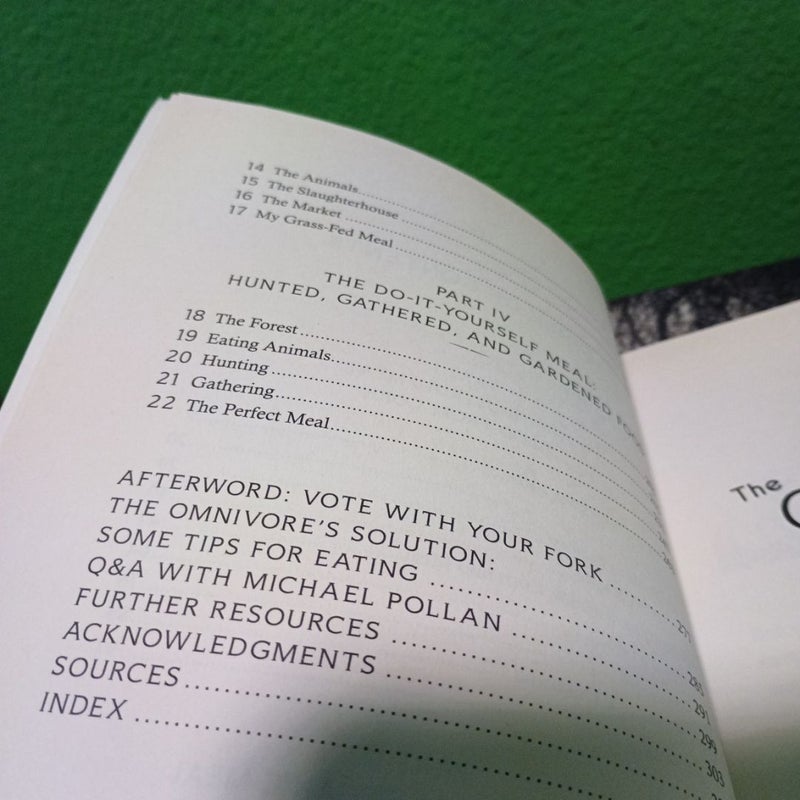 14 The Animals..............................
15 The Slaughterhouse..............................
16 The Market ..............................
17 My Grass-Fed Meal ..............................
PART IV
THE DO-IT-YOURSELF MEAL:
HUNTED, GATHERED, AND GARDENED
18 The Forest..............................
19 Eating Animals..............................
20 Hunting..............................
21 Gathering..............................
22 The Perfect Meal..............................
AFTERWORD: VOTE WITH YOUR FORK ..........
THE OMNIVORE'S SOLUTION:
SOME TIPS FOR EATING ..............................
Q&A WITH MICHAEL POLLAN ....................
FURTHER RESOURCES .............................. 291
ACKNOWLEDGMENTS .............................. 299
SOURCES.............................. 303
INDEX ..............................
The